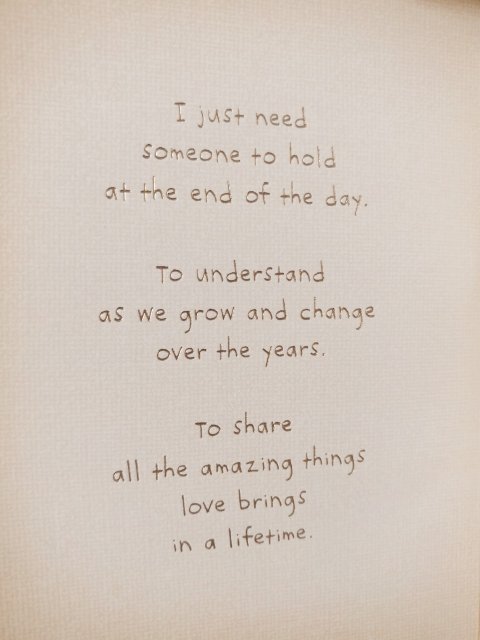 I just need
someone to hold
at the end of the day.
To understand
as we grow and change
over the years.
To share
all the amazing things
love brings
in a lifetime.